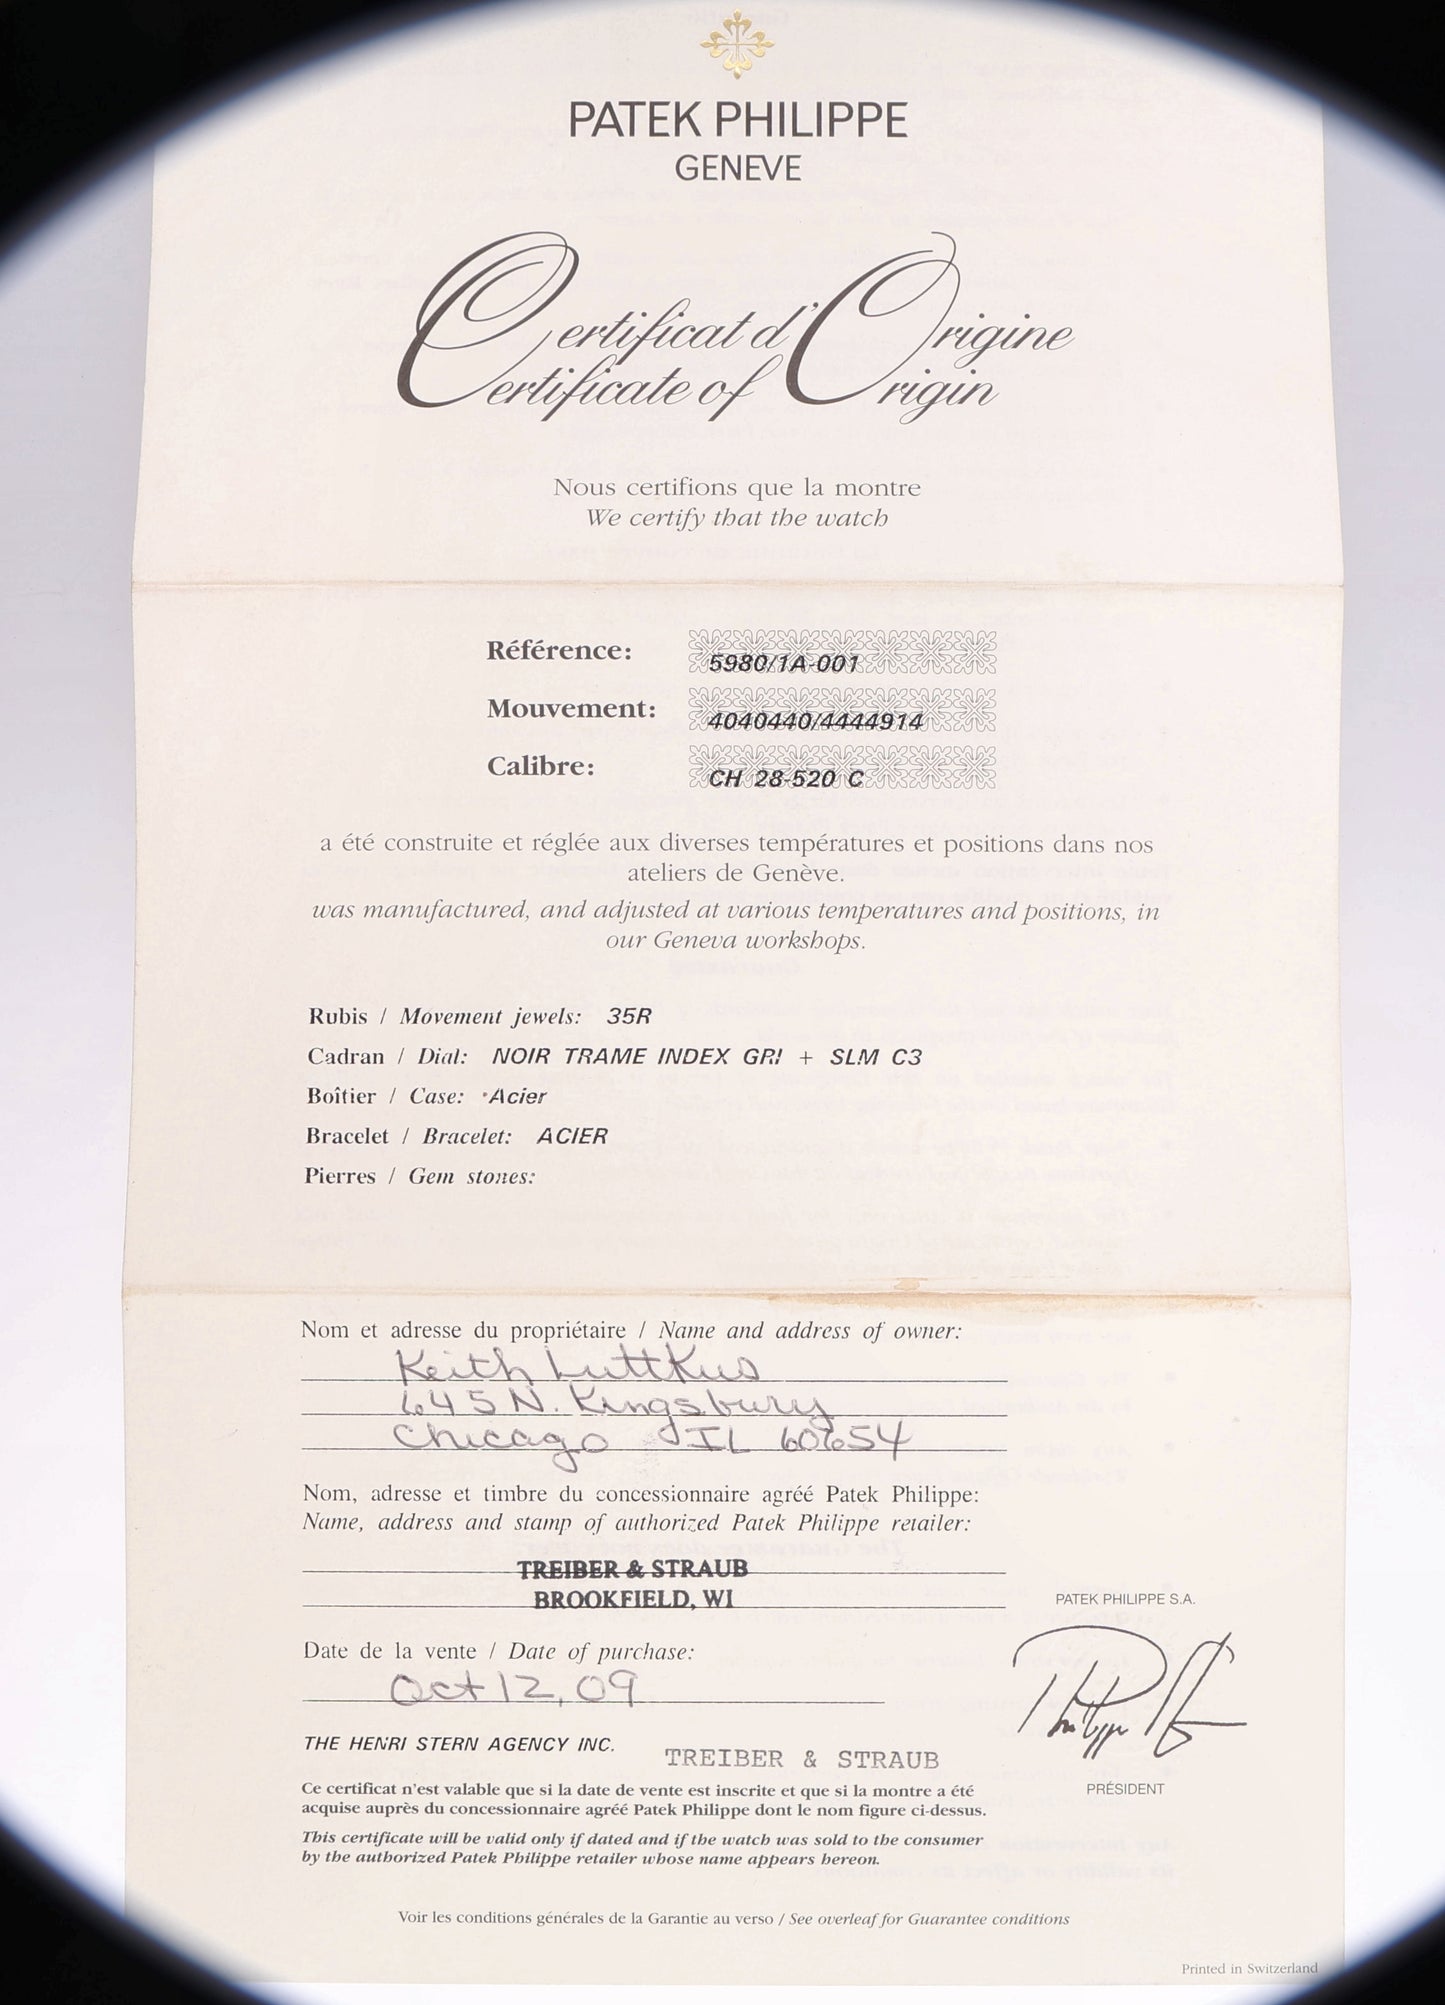 PATEK PHILIPPE
GENEVE
Certificat d'Origine
Certificate of Origin
Nous certifions que la montre
We certify that the watch
Référence: 5980/1A-001
Mouvement: 4040440/4444914
Calibre: CH 28-520 C
a été construite et réglée aux diverses températures et positions dans nos
ateliers de Genève.
was manufactured, and adjusted at various temperatures and positions, in
our Geneva workshops.
Rubis / Movement jewels: 35R
Cadran / Dial: NOIR TRAME INDEX GRI + SLM C3
Boîtier / Case: Acier
Bracelet / Bracelet: ACIER
Pierres / Gem stones:
Nom et adresse du propriétaire / Name and address of owner:
Keith Luttkus
645 N. Kingsbury
Chicago IL 60654
Nom, adresse et timbre du concessionnaire agréé Patek Philippe:
Name, address and stamp of authorized Patek Philippe retailer:
TREIBER & STRAUB
BROOKFIELD, WI
PATEK PHILIPPE S.A.
Date de la vente / Date of purchase:
Oct 12, 09
THE HENRI STERN AGENCY INC. TREIBER & STRAUB
PRÉSIDENT
Ce certificat n'est valable que si la date de vente est inscrite et que si la montre a été
acquise auprès du concessionnaire agréé Patek Philippe dont le nom figure ci-dessus.
This certificate will be valid only if dated and if the watch was sold to the consumer
by the authorized Patek Philippe retailer whose name appears hereon.
Voir les conditions générales de la Garantie au verso / See overleaf for Guarantee conditions
Printed in Switzerland